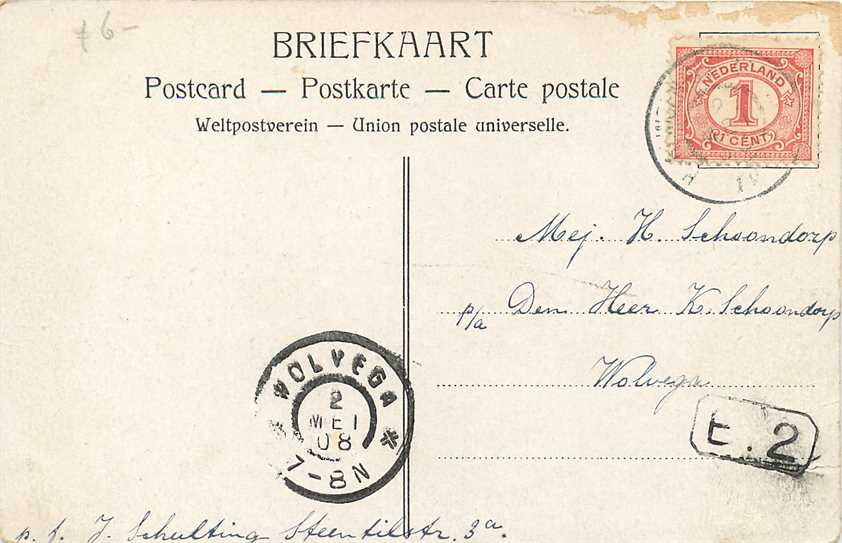 ƒ6-
BRIEFKAART
Postcard — Postkarte — Carte postale
Weltpostverein — Union postale universelle.
NEDERLAND
1
CENT
Mej. H. Schoondorp
p/a Den Heer K. Schoondorp
Wolvega
WOLVEGA
2
MEI
08
7-8N
E.2
p. f. J. Schulting Steentilstr. 3a.